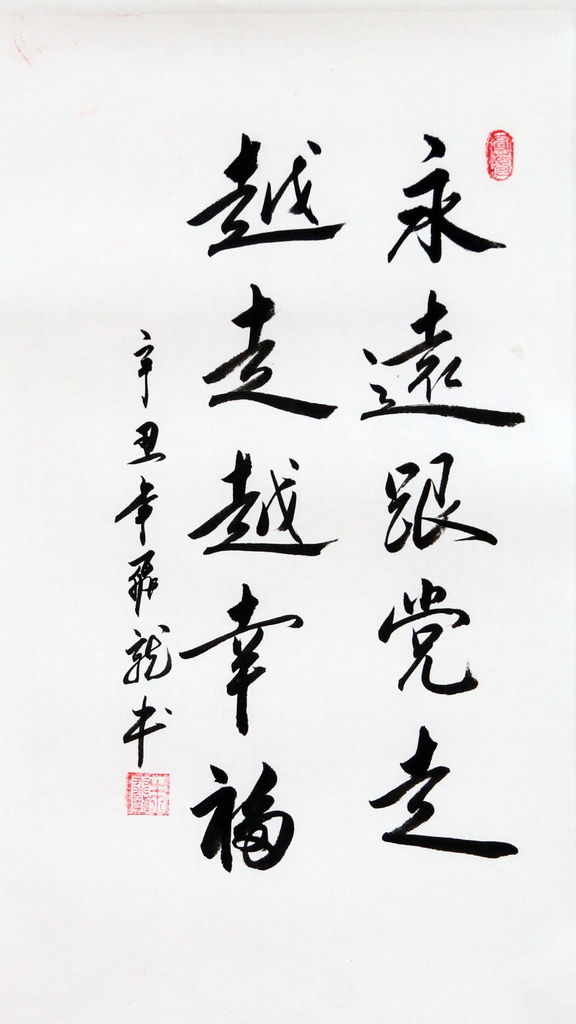 永遠跟党走
越走越幸福
辛丑年聶龍书